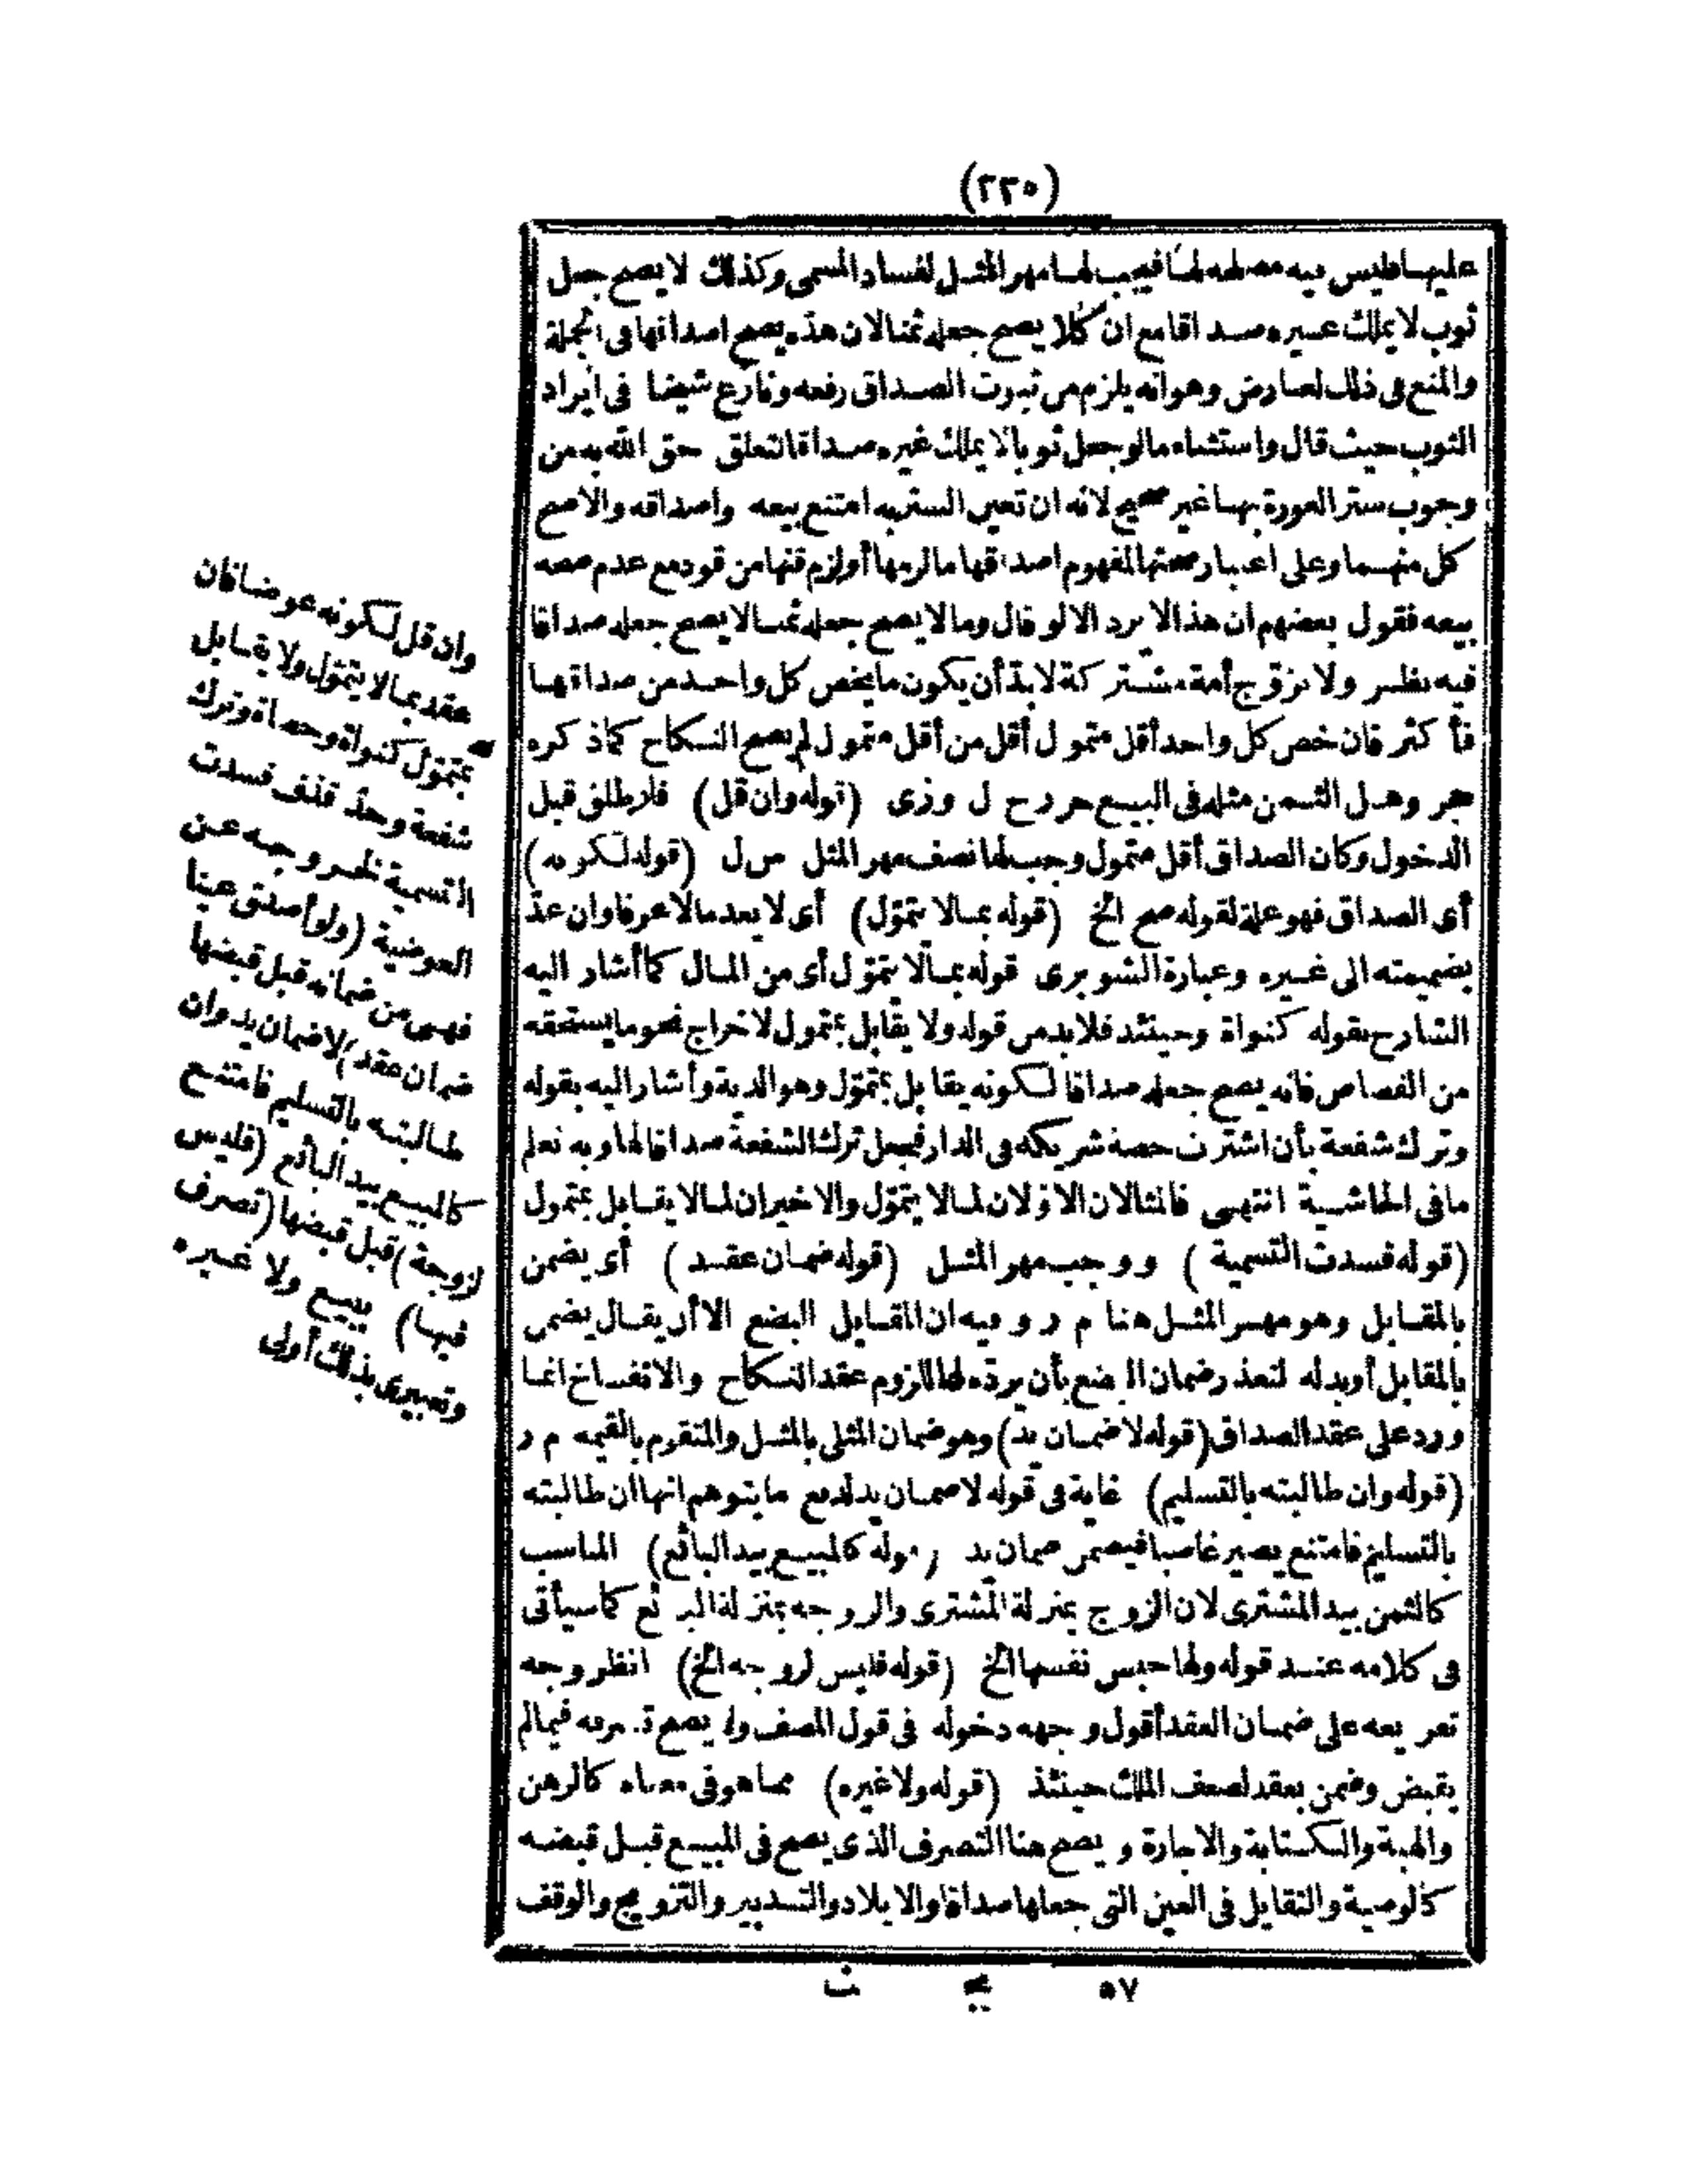 (٢٢٥)
عليها فليس فيه مصلحة لها فيجب لها مهر المثل لفساد المسمى وكذلك لا يصح جعل
ثوب لا يملك غيره صداقا مع ان كلا يصح جعله ثمنا الا ان هذه يصح اصداقها فى الجملة
والمنع فى ذلك لعارض وهو انه يلزم من ثبوت الصداق رفعه ونازع شيخنا فى ايراد
الثوب حيث قال واستثناء ما لو جعل ثوبا لا يملك غيره صداقا لتعلق حق الله به من
وجوب ستر العورة بها غير صحيح لانه ان تعين الستر به امتنع بيعه واصداقه والا صح
كل منهما وعلى اعتبار صحتها لمفهوم اصداقها ما لزمها أو لزم قنها من قود مع عدم صحة
بيعه فقول بعضهم ان هذا لا يرد الا لو قال وما لا يصح جعله ثمنا لا يصح جعله صداقا
فيه نظر ولا تزوج أمة مشتركة لا بد أن يكون ما يخص كل واحد من صداقها
فأكثر فان خص كل واحد أقل متمول أقل من أقل متمول لم يصح النكاح كما ذكره
حجر وهل الثمن مثله فى البيع حرر ح ل و زى (قوله وان قل) فلو طلق قبل
الدخول وكان الصداق أقل متمول وجب لها نصف مهر المثل س ل (قوله لكونه)
أى الصداق فهو علة لقوله صح الخ (قوله بما لا يتمول) أى لا يعد مالا عرفا وان عد
بضميمته الى غيره وعبارة الشوبرى قوله بما لا يتمول أى من المال كما أشار اليه
الشارح بقوله كنواة وحينئذ فلا بد من قوله ولا يقابل بمتمول لاخراج نحو ما يستحقه
من القصاص فانه يصح جعله صداقا لكونه يقابل بمتمول وهو الدية وأشار اليه بقوله
وترك شفعة بأن اشترت حصة شريكه فى الدار فجعل ترك الشفعة صداقا لها وبه تعلم
ما فى الحاشية انتهى فالمثالان الاولان لما لا يتمول والاخيران لما لا يقابل بمتمول
(قوله فسدت التسمية) ووجب مهر المثل (قوله ضمان عقد) أى يضمن
بالمقابل وهو مهر المثل هنا م ر وفيه ان المقابل البضع الا أن يقال يضمن
بالمقابل أو بدله لتعذر ضمان البضع بأن يرده لها للزوم عقد النكاح والانفساخ انما
ورد على عقد الصداق (قوله لا ضمان يد) وهو ضمان المثلى بالمثل والمتقوم بالقيمة م ر
(قوله وان طالبته بالتسليم) غاية فى قوله لا ضمان يد لدفع ما يتوهم انها ان طالبته
بالتسليم فامتنع يصير غاصبا فيضمن ضمان يد (قوله كالمبيع بيد البائع) المناسب
كالثمن بيد المشترى لان الزوج بمنزلة المشترى والزوجة بمنزلة البائع كما سيأتى
فى كلامه عند قوله ولها حبس نفسها الخ (قوله فليس لزوجة الخ) انظر وجه
تفريعه على ضمان العقد أقول وجهه دخوله فى قول المصنف ولا يصح تصرفه فيما لم
يقبض وضمن بعقد لضعف الملك حينئذ (قوله ولا غيره) مما هو فى معناه كالرهن
والهبة والكتابة والاجارة و يصح هنا التصرف الذى يصح فى المبيع قبل قبضه
كالوصية والتقايل فى العين التى جعلها صداقا والايلاد والتدبير والتزويج والوقف
وان قل لكونه عوضا فان
عقد بما لا يتمول ولا يقابل
بمتمول كنواة وحصاة وترك
شفعة وحد قذف فسدت
التسمية لخروجه عن
العوضية (ولو أصدق عينا
فهى من ضمانه قبل قبضها
ضمان عقد) لا ضمان يد وان
طالبته بالتسليم فامتنع
كالمبيع بيد البائع (فليس
لزوجة) قبل قبضها (تصرف
فيها) ببيع ولا غيره
وتعبيرى بذلك أولى
٥٧ بج ث